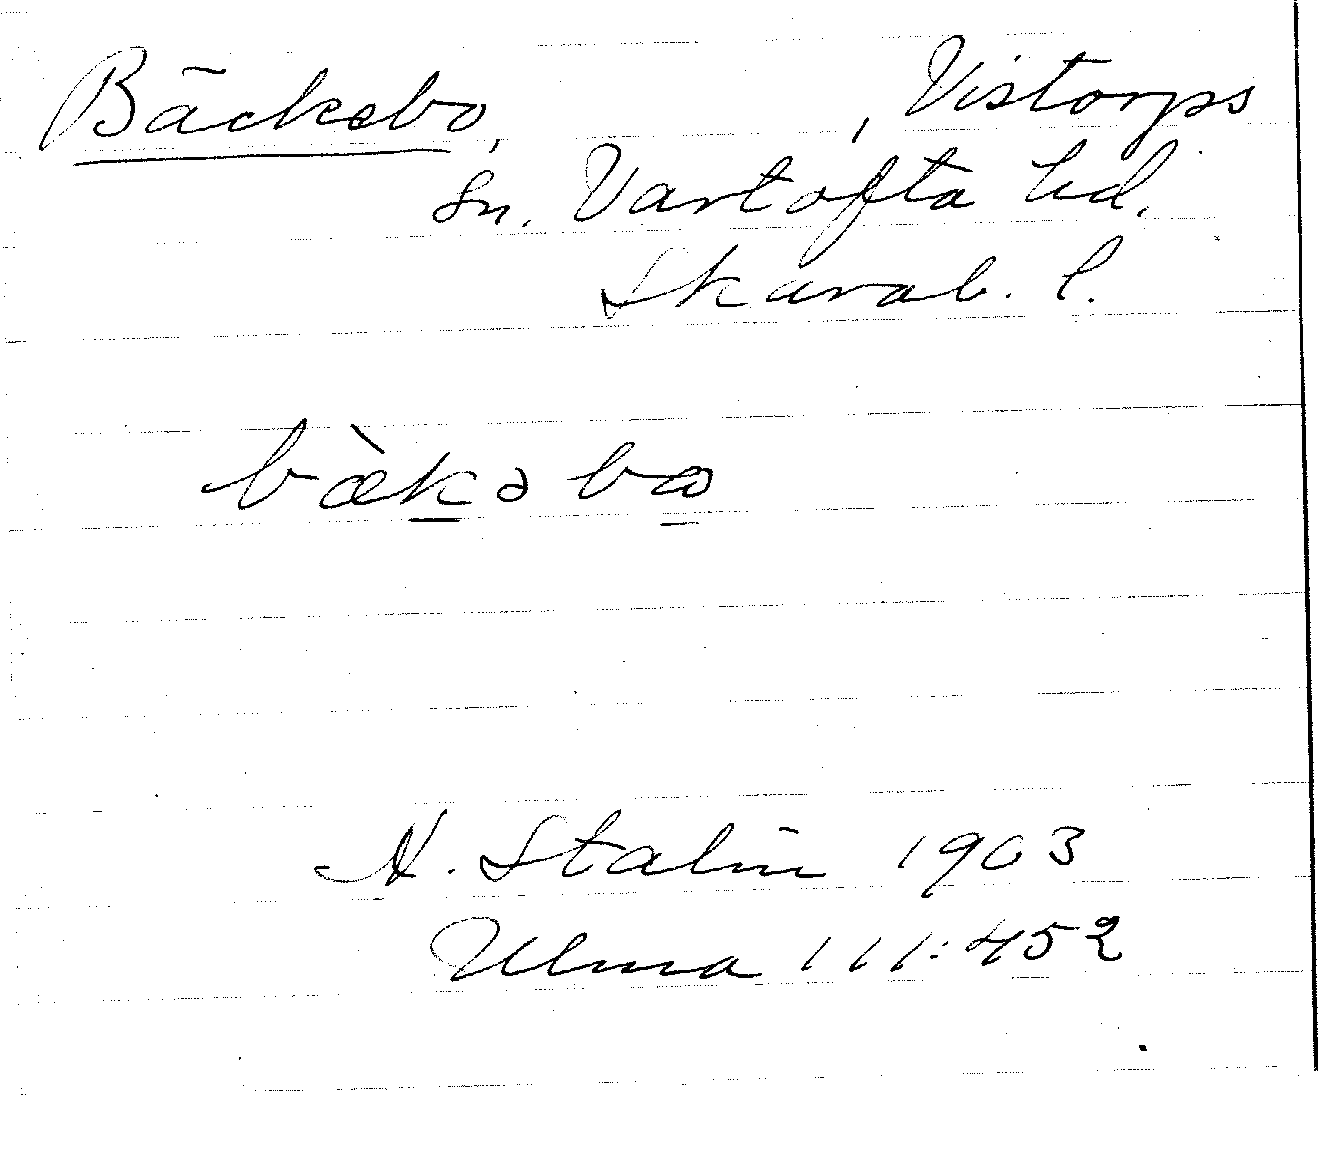 Bäckebo, , Vistorps
Sn. Vartofta hd.
Skarab. l.
bæ̀kəbω
N. Stalin 1903
Ulma 111:452